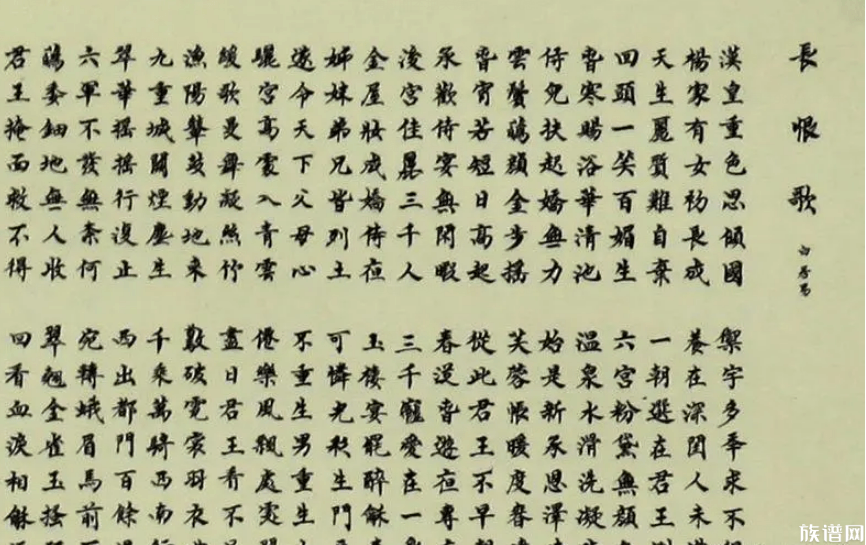 長恨歌
白居易
漢皇重色思傾國 禦宇多年求不
楊家有女初長成 養在深閨人未
天生麗質難自棄 一朝選在君王
回頭一笑百媚生 六宮粉黛無顏
春寒賜浴華清池 溫泉水滑洗凝
侍兒扶起嬌無力 始是新承恩澤
雲鬢蘤顏金步搖 芙蓉帳暖度春
春宵苦短日高起 從此君王不早
承歡侍宴無閑暇 春從春遊夜專
後宮佳麗三千人 三千寵愛在一
金屋妝成嬌侍夜 玉樓宴罷醉龢
姊妹弟兄皆列土 可憐光彩生門
遂令天下父母心 不重生男重生
驪宮高處入青雲 僊樂風飄處處
緩歌曼舞凝絲竹 盡日君王看不
漁陽鼙鼓動地來 驚破霓裳羽衣
九重城闕煙塵生 千乘萬騎西南
翠華搖搖行復止 西出都門百餘
六軍不發無奈何 宛轉蛾眉馬前
蘤委鈿地無人收 翠翹金雀玉搔
君王掩面救不得 回看血淚相龢
族谱网